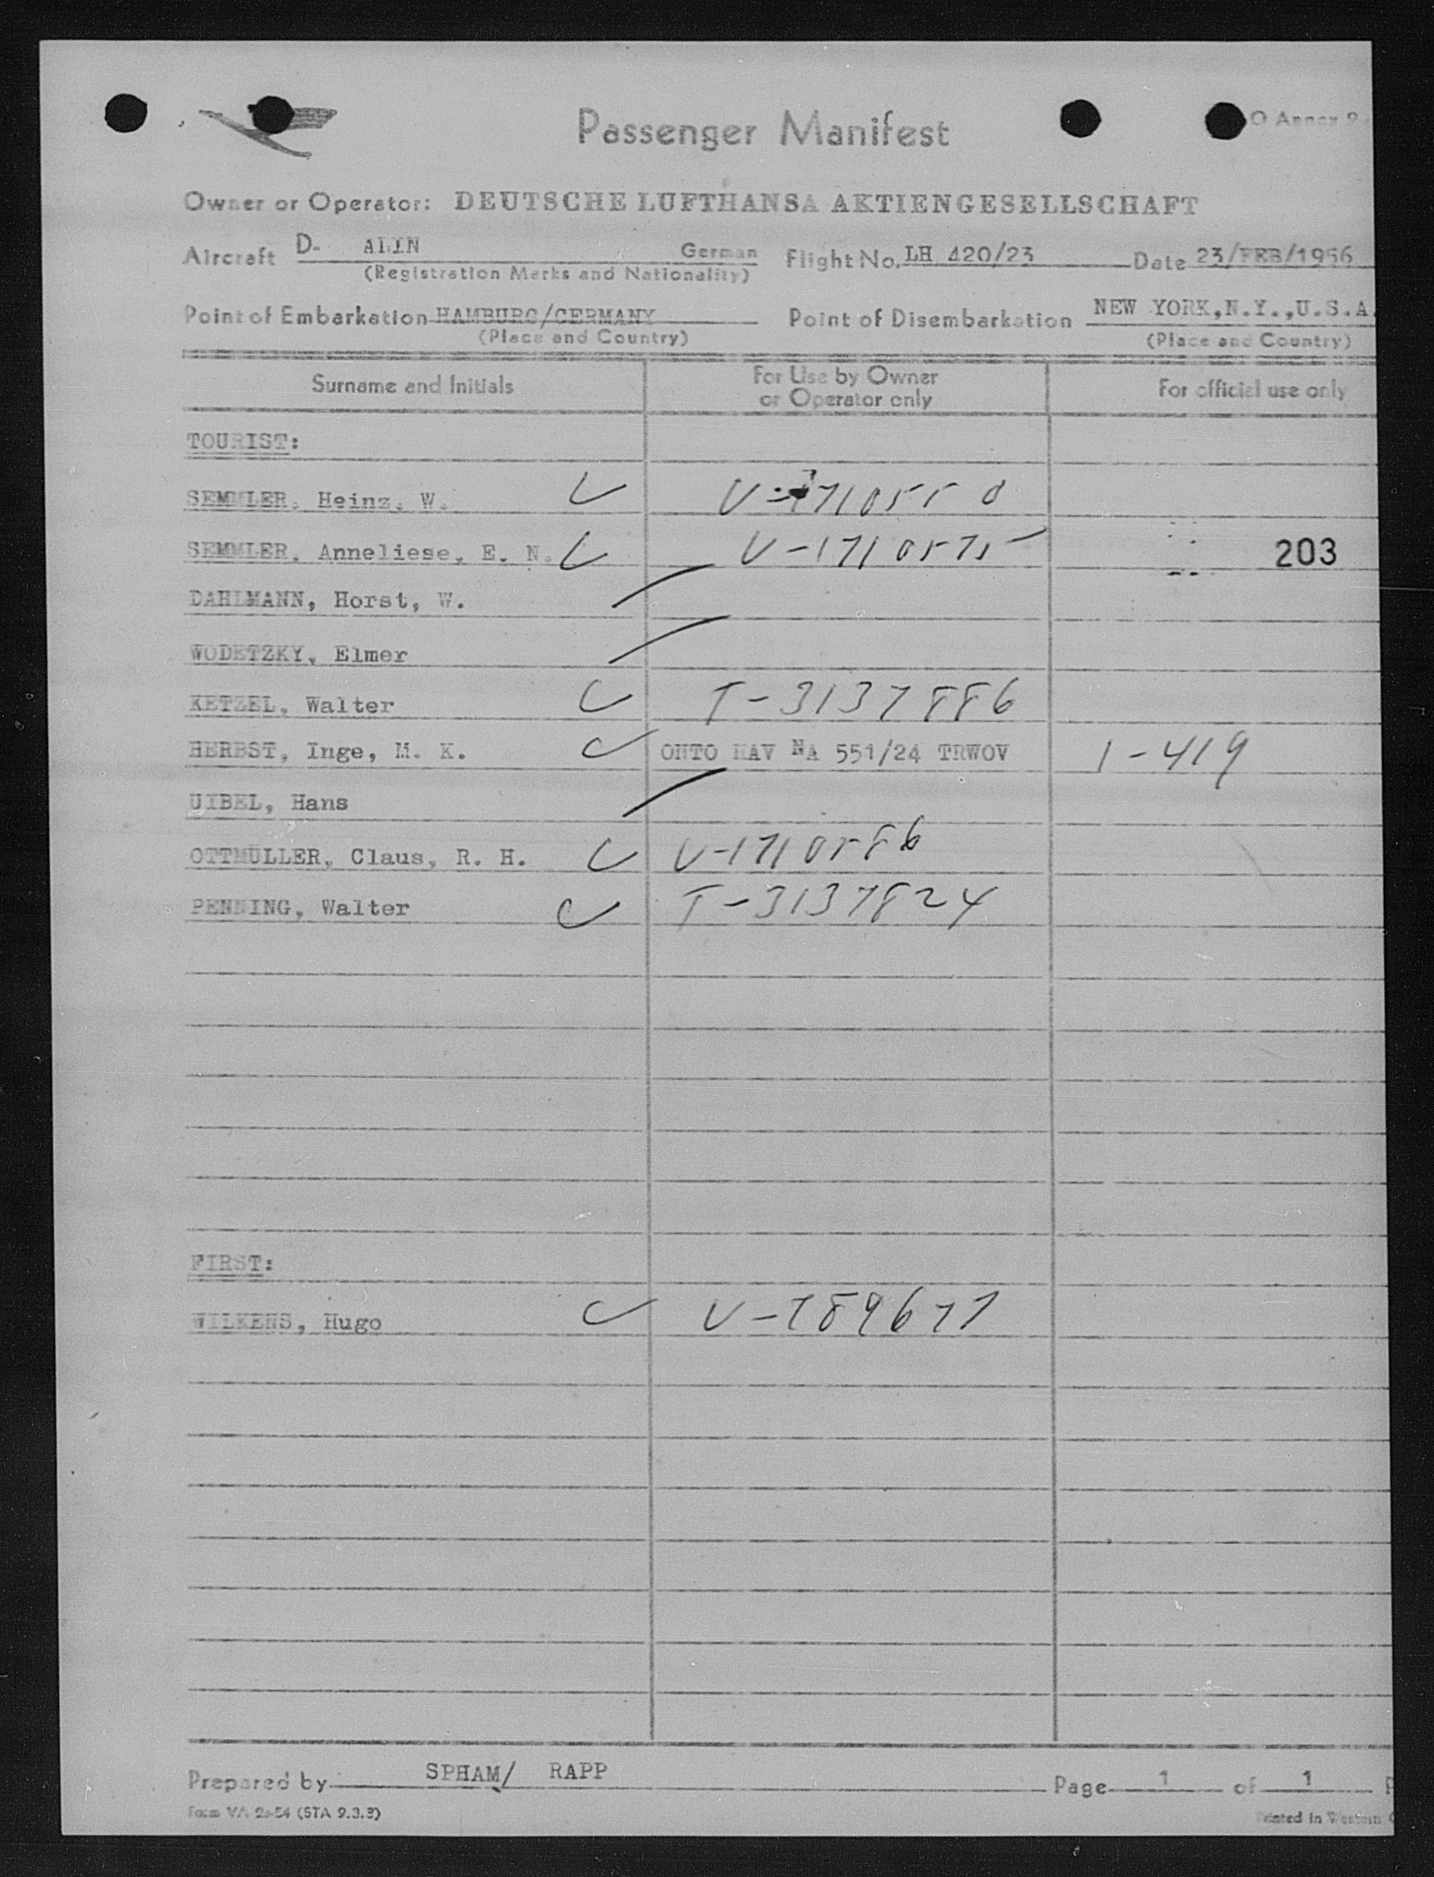 Passenger Manifest
O Annex 9
Owner or Operator: DEUTSCHE LUFTHANSA AKTIENGESELLSCHAFT
Aircraft D- ALIN German Flight No. LH 420/23 Date 23/FEB/1956
(Registration Marks and Nationality)
Point of Embarkation HAMBURG/GERMANY Point of Disembarkation NEW YORK,N.Y.,U.S.A.
(Place and Country) (Place and Country)
Surname and Initials For Use by Owner or Operator only For official use only
TOURIST:
SEMMLER, Heinz, W. V-1710550
SEMMLER, Anneliese, E. N. V-1710575 203
DAHLMANN, Horst, W.
WODETZKY, Elmer
KETZEL, Walter T-3137886
HERBST, Inge, M. K. OHTO HAV NA 551/24 TRWOV 1-419
UIBEL, Hans
OTTMÜLLER, Claus, R. H. V-1710586
PENNING, Walter T-3137824
FIRST:
WILKENS, Hugo V-789677
Prepared by SPHAM/ RAPP Page 1 of 1
Form VA 2a-54 (STA 9.3.3) Printed in Western